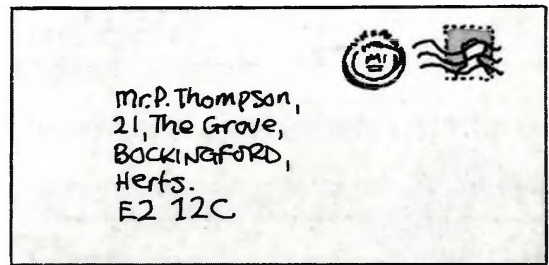 Mr. P. Thompson,
21, The Grove,
BOCKINGFORD,
Herts.
E2 12C